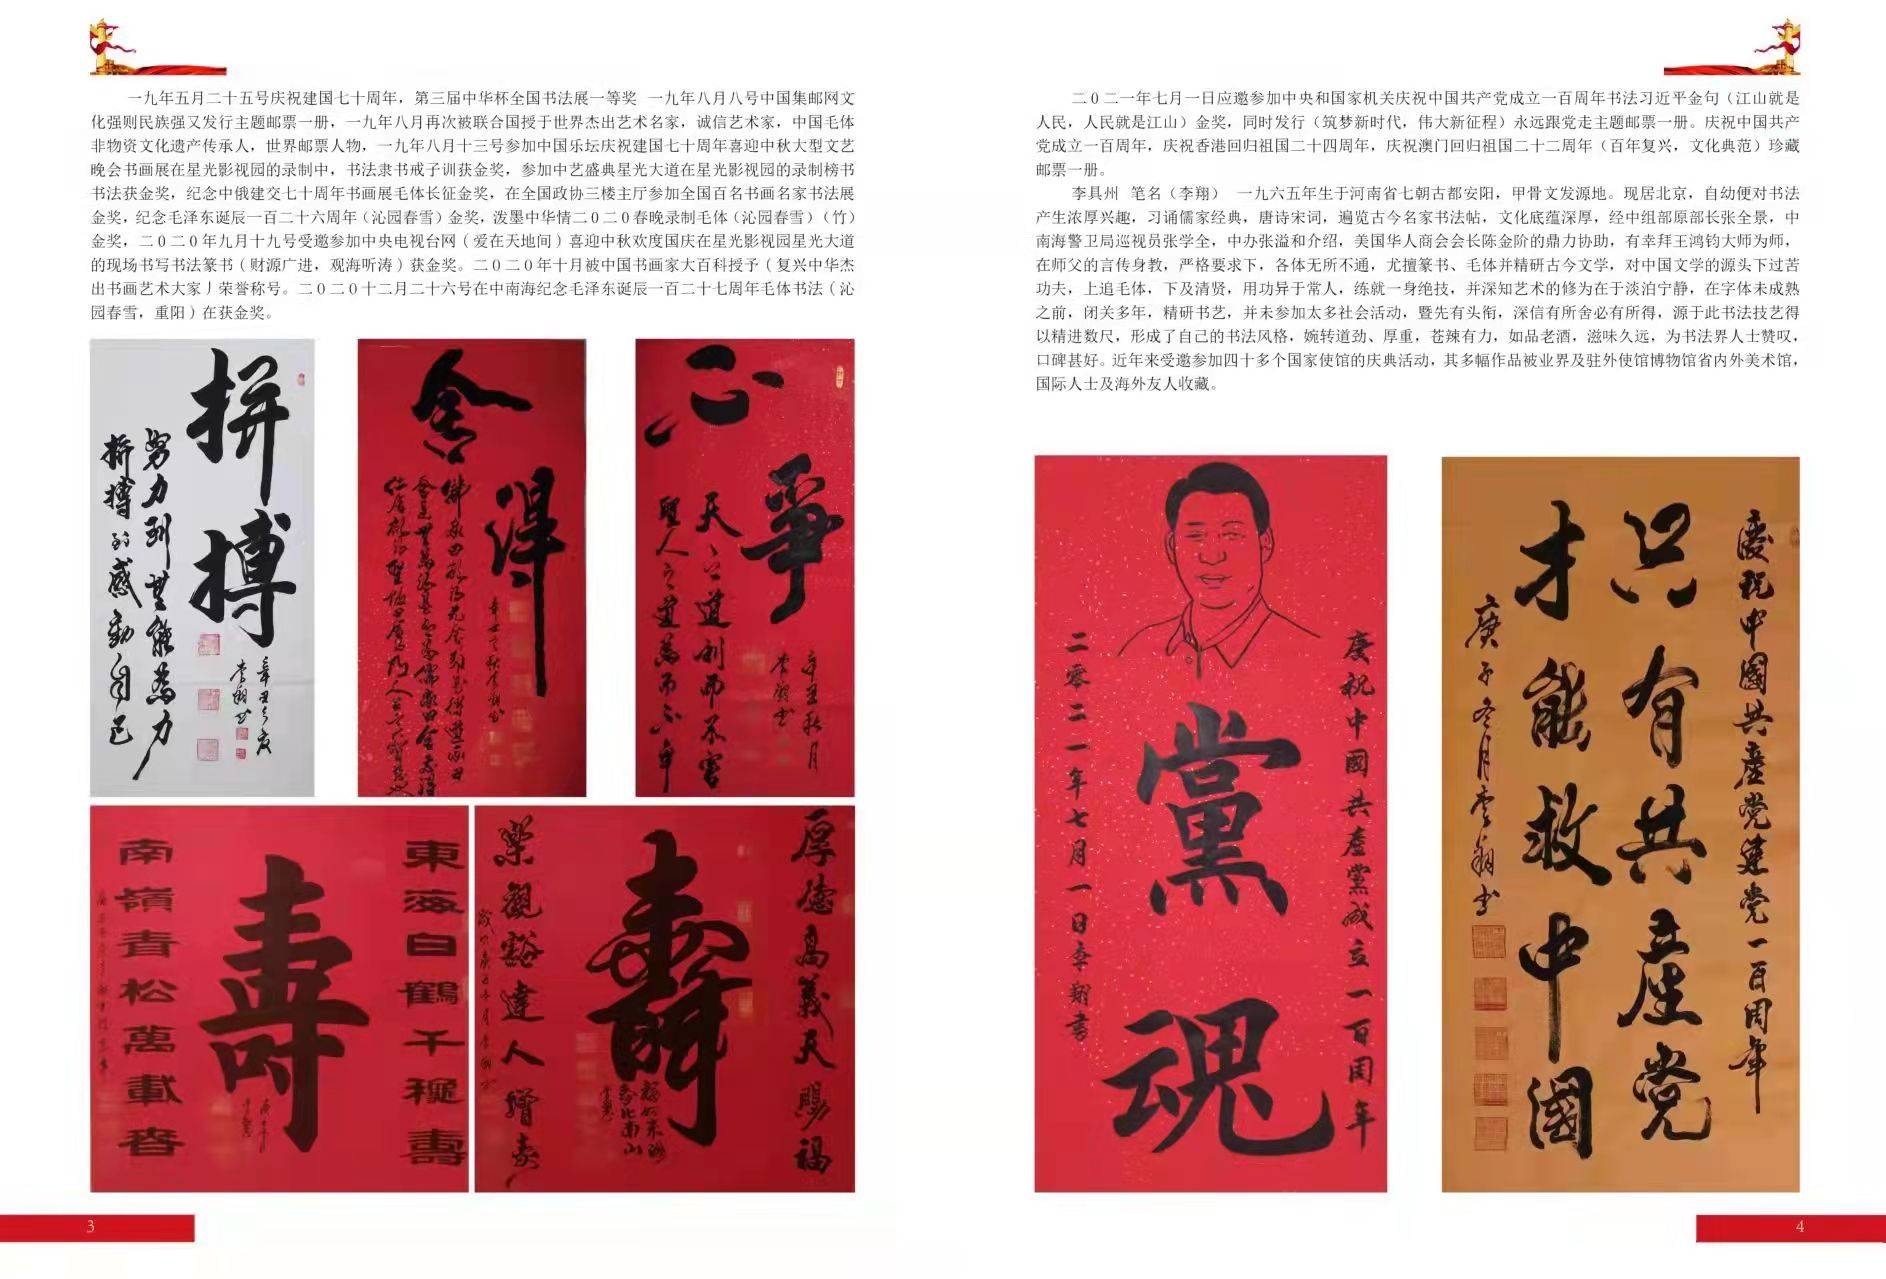 一九年五月二十五号庆祝建国七十周年，第三届中华杯全国书法展一等奖 一九年八月八号中国集邮网文
化强则民族强又发行主题邮票一册，一九年八月再次被联合国授于世界杰出艺术名家，诚信艺术家，中国毛体
非物资文化遗产传承人，世界邮票人物，一九年八月十三号参加中国乐坛庆祝建国七十周年喜迎中秋大型文艺
晚会书画展在星光影视园的录制中，书法隶书戒子训获金奖，参加中艺盛典星光大道在星光影视园的录制榜书
书法获金奖，纪念中俄建交七十周年书画展毛体长征金奖，在全国政协三楼主厅参加全国百名书画名家书法展
金奖，纪念毛泽东诞辰一百二十六周年（沁园春雪）金奖，泼墨中华情二0二0春晚录制毛体（沁园春雪）（竹）
金奖，二0二0年九月十九号受邀参加中央电视台网（爱在天地间）喜迎中秋欢度国庆在星光影视园星光大道
的现场书写书法篆书（财源广进，观海听涛）获金奖。二0二0年十月被中国书画家大百科授予（复兴中华杰
出书画艺术大家丿荣誉称号。二0二0十二月二十六号在中南海纪念毛泽东诞辰一百二十七周年毛体书法（沁
园春雪，重阳）在获金奖。
拼搏
努力到无能为力
拼搏到感动自己
辛丑之夏
李翔书
舍得
不争
天之道利而不害
圣人之道为而不争
辛丑秋月
李翔书
東海白鶴千穐壽
壽
南嶺青松萬載春
厚德高義天賜福
壽
樂觀豁達人增寿
3
二0二一年七月一日应邀参加中央和国家机关庆祝中国共产党成立一百周年书法习近平金句（江山就是
人民，人民就是江山）金奖，同时发行（筑梦新时代，伟大新征程）永远跟党走主题邮票一册。庆祝中国共产
党成立一百周年，庆祝香港回归祖国二十四周年，庆祝澳门回归祖国二十二周年（百年复兴，文化典范）珍藏
邮票一册。
李具州 笔名（李翔） 一九六五年生于河南省七朝古都安阳，甲骨文发源地。现居北京，自幼便对书法
产生浓厚兴趣，习诵儒家经典，唐诗宋词，遍览古今名家书法帖，文化底蕴深厚，经中组部原部长张全景，中
南海警卫局巡视员张学全，中办张溢和介绍，美国华人商会会长陈金阶的鼎力协助，有幸拜王鸿钧大师为师，
在师父的言传身教，严格要求下，各体无所不通，尤擅篆书、毛体并精研古今文学，对中国文学的源头下过苦
功夫，上追毛体，下及清贤，用功异于常人，练就一身绝技，并深知艺术的修为在于淡泊宁静，在字体未成熟
之前，闭关多年，精研书艺，并未参加太多社会活动，暨先有头衔，深信有所舍必有所得，源于此书法技艺得
以精进数尺，形成了自己的书法风格，婉转遒劲、厚重，苍辣有力，如品老酒，滋味久远，为书法界人士赞叹，
口碑甚好。近年来受邀参加四十多个国家使馆的庆典活动，其多幅作品被业界及驻外使馆博物馆省内外美术馆，
国际人士及海外友人收藏。
慶祝中國共產黨成立一百周年
黨魂
二零二一年七月一日李翔書
慶祝中國共產党建党一百周年
只有共產党
才能救中國
庚子冬月李翔书
4